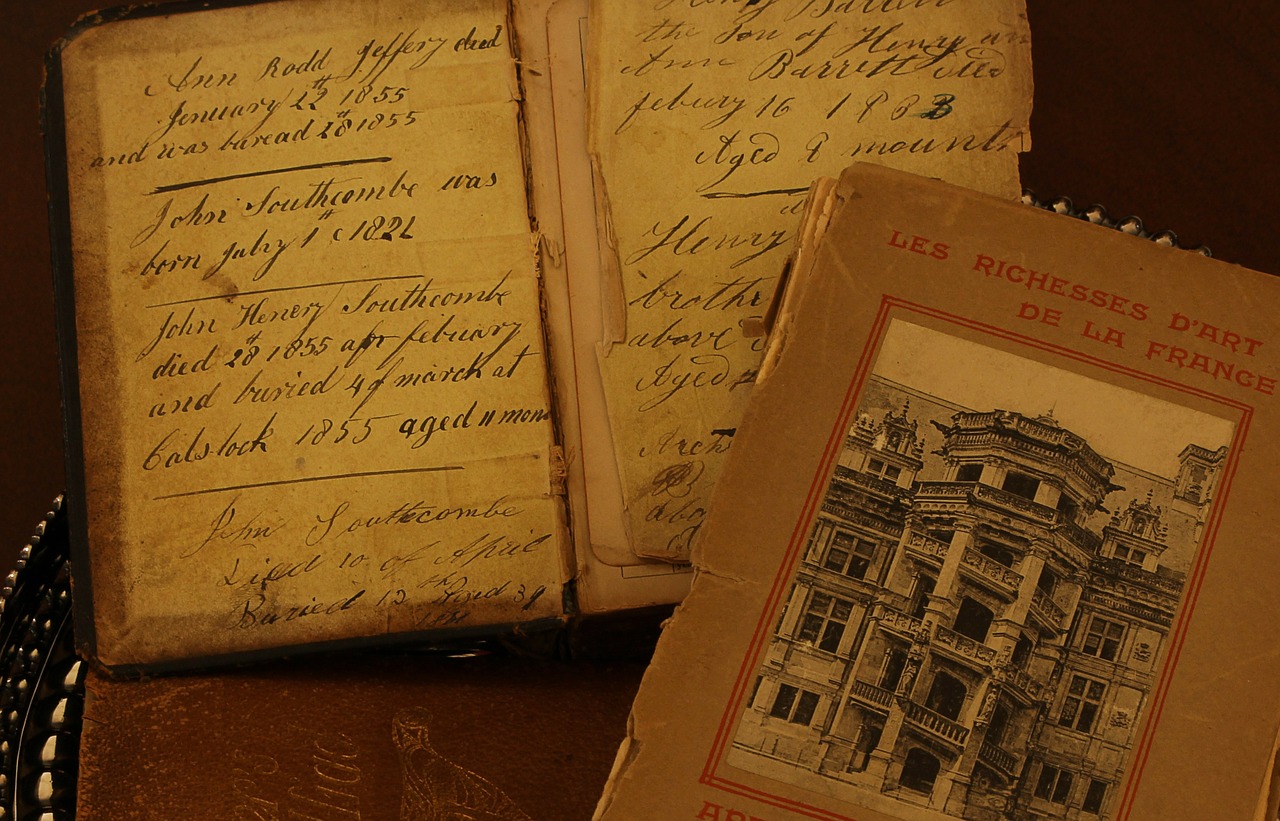 Ann Rodd Jeffery died
Jenuary 22th 1855
and was buread 28th 1855
John Southcombe was
born July 1th 1821
John Henery Southcombe
died 28th 1855 apr febuary
and buried 4 of march at
Calstock 1855 aged 11 mon
John Southcombe
Died 10 of April
Buried 13th Aged 39
Henry Barrett
the Son of Henry an
Ann Barrett died
febury 16 1883
Aged 8 mounts
Henry
brothe
above
Aged
abo
LES RICHESSES D'ART
DE LA FRANCE